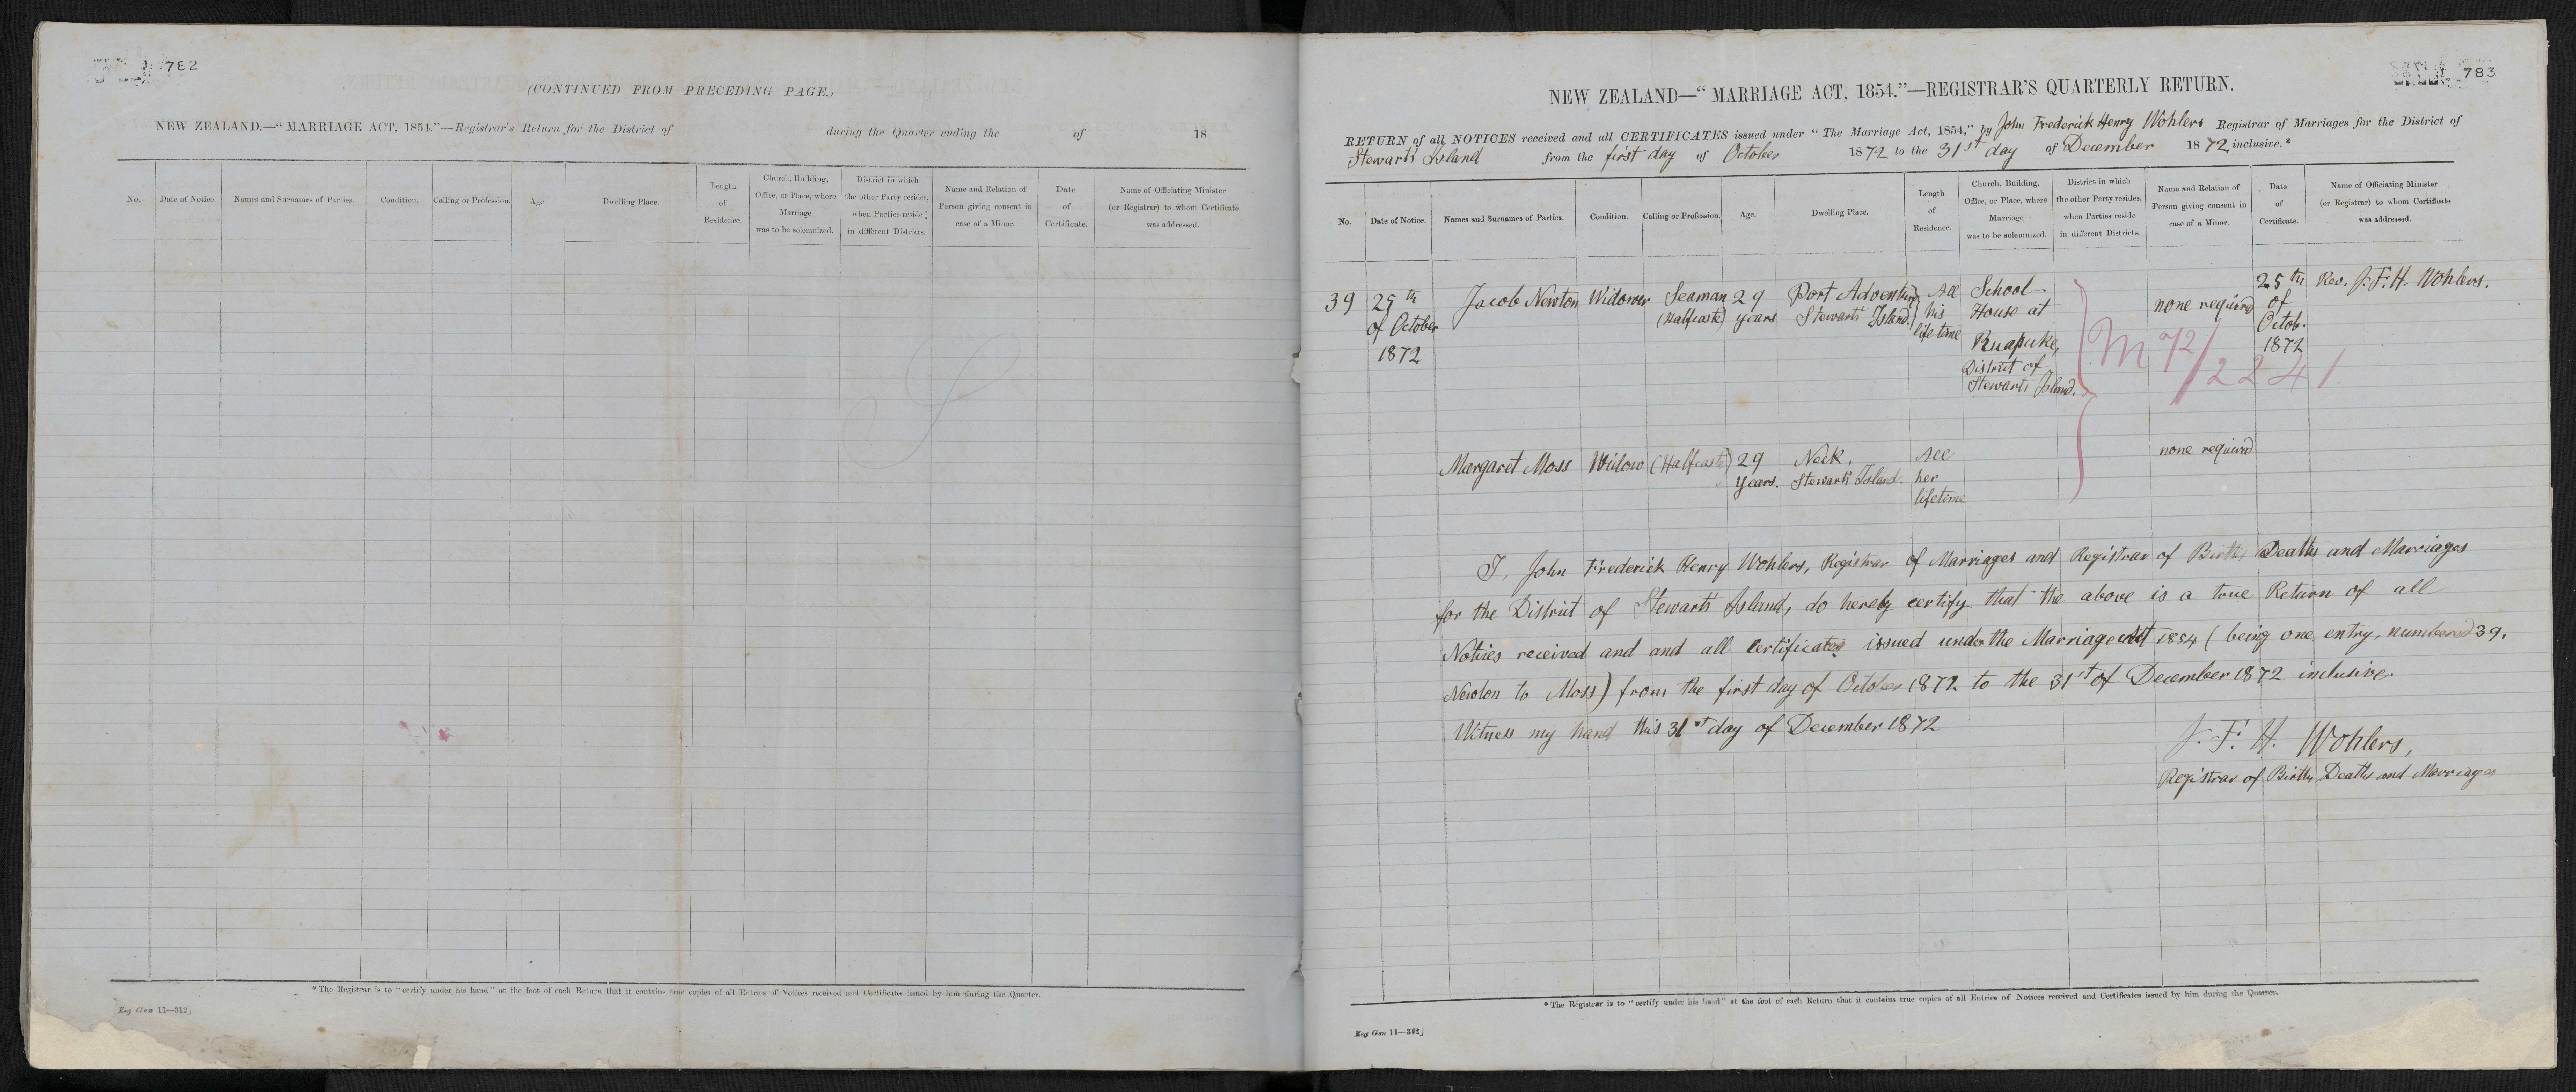 782
(CONTINUED FROM PRECEDING PAGE.)
NEW ZEALAND.—"MARRIAGE ACT, 1854."—Registrar's Return for the District of during the Quarter ending the of 18
No.
Date of Notice.
Names and Surnames of Parties.
Condition.
Calling or Profession.
Age.
Dwelling Place.
Length
of
Residence.
Church, Building,
Office, or Place, where
Marriage
was to be solemnized.
District in which
the other Party resides,
when Parties reside
in different Districts.
Name and Relation of
Person giving consent in
case of a Minor.
Date
of
Certificate.
Name of Officiating Minister
(or Registrar) to whom Certificate
was addressed.
*The Registrar is to "certify under his hand" at the foot of each Return that it contains true copies of all Entries of Notices received and Certificates issued by him during the Quarter.
Reg Gen 11—312]
783
NEW ZEALAND—"MARRIAGE ACT, 1854."—REGISTRAR'S QUARTERLY RETURN.
RETURN of all NOTICES received and all CERTIFICATES issued under "The Marriage Act, 1854," by John Frederick Henry Wohlers Registrar of Marriages for the District of
Stewart's Island from the first day of October 1872 to the 31st day of December 1872 inclusive.*
No.
Date of Notice.
Names and Surnames of Parties.
Condition.
Calling or Profession.
Age.
Dwelling Place.
Length
of
Residence.
Church, Building,
Office, or Place, where
Marriage
was to be solemnized.
District in which
the other Party resides,
when Parties reside
in different Districts.
Name and Relation of
Person giving consent in
case of a Minor.
Date
of
Certificate.
Name of Officiating Minister
(or Registrar) to whom Certificate
was addressed.
39
25th
of October
1872
Jacob Newton
Widower
Seaman
(Halfcaste)
29
years
Port Adventure
Stewart's Island.
All
his
life time
School
House at
Ruapuke,
District of
Stewart's Island.
M 72/2241
none required
25th
of
Octob.
1872
Rev. J. F. H. Wohlers.
Margaret Moss
Widow
(Halfcaste)
29
years.
Neck,
Stewart's Island.
All
her
lifetime
none required
I, John Frederick Henry Wohlers, Registrar of Marriages and Registrar of Births Deaths and Marriages
for the District of Stewart's Island, do hereby certify that the above is a true Return of all
Notices received and and all Certificates issued under the Marriage Act 1854 (being one entry, numbered 39,
Newton to Moss) from the first day of October 1872 to the 31st of December 1872 inclusive.
Witness my hand this 31st day of December 1872
J. F. H. Wohlers,
Registrar of Births Deaths and Marriages
*The Registrar is to "certify under his hand" at the foot of each Return that it contains true copies of all Entries of Notices received and Certificates issued by him during the Quarter.
Reg Gen 11—312]